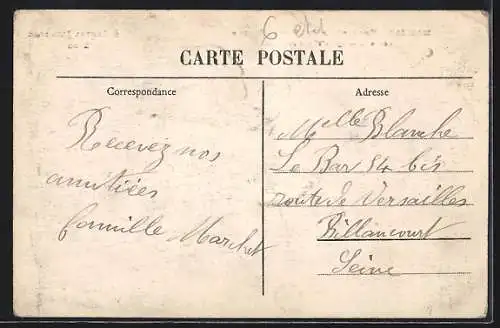 CARTE POSTALE
Correspondance
Adresse
Recevez nos
amitiées
famille Marchet
Melle Blanche
Le Bar 84 bis
route de Versailles
Billancourt
Seine